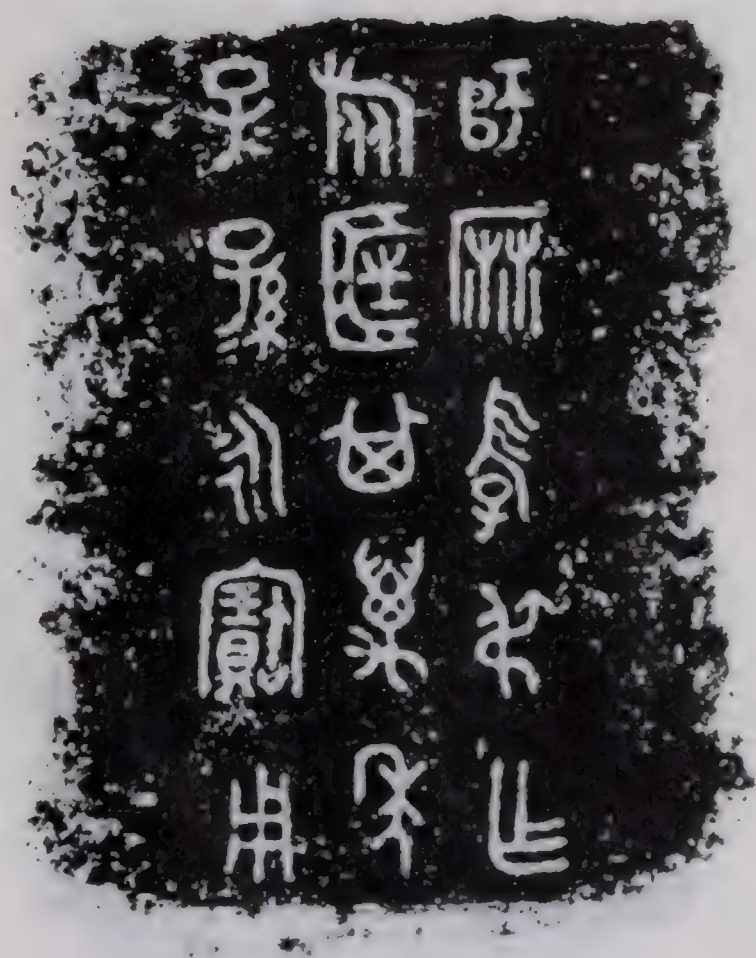 師麻孝叔乍
旅匡其萬年
子孫永寶用